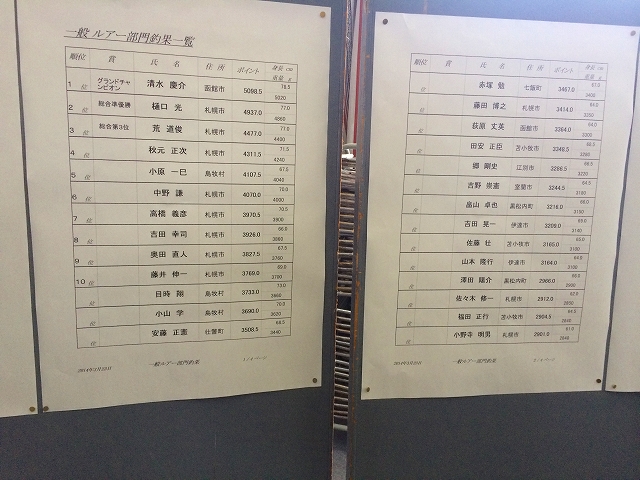 一般 ルアー部門釣果一覧
順位 賞 氏 名 住 所 ポイント 身長 cm 重量 g
1 位 グランドチャンピオン 清水 慶介 函館市 5098.5 78.5 5020
2 位 総合準優勝 樋口 光 札幌市 4937.0 77.0 4860
3 位 総合第3位 荒 道俊 札幌市 4477.0 77.0 4400
4 位 秋元 正次 札幌市 4311.5 71.5 4240
5 位 小原 一巳 島牧村 4107.5 67.5 4040
6 位 中野 謙 札幌市 4070.0 70.0 4000
7 位 高橋 義彦 札幌市 3970.5 70.5 3900
8 位 吉田 幸司 札幌市 3926.0 66.0 3860
9 位 奥田 直人 札幌市 3827.5 67.5 3760
10 位 藤井 伸一 札幌市 3769.0 69.0 3700
位 目時 翔 島牧村 3733.0 73.0 3660
位 小山 学 島牧村 3690.0 70.0 3620
位 安藤 正憲 壮瞥町 3508.5 68.5 3440
2014年3月23日 一般ルアー部門釣果 1/4ページ
順位 賞 氏 名 住 所 ポイント 身長 cm 重量 g
位 赤塚 勉 七飯町 3467.0 67.0 3400
位 藤田 博之 札幌市 3414.0 64.0 3350
位 荻原 丈英 函館市 3364.0 64.0 3300
位 田安 正臣 苫小牧市 3348.5
位 郷 剛史 江別市 3286.5 66.5 3220
位 吉野 崇憲 室蘭市 3244.5 64.5 3180
位 畠山 卓也 黒松内町 3216.0 66.0 3150
位 吉田 晃一 伊達市 3209.0 3140
位 佐藤 壮 苫小牧市 3165.0 65.0 3100
位 山本 隆行 伊達市 3164.0 64.0 3100
位 澤田 陽介 黒松内町 2966.0 2900
位 佐々木 修一 札幌市 2912.0 62.0 2850
位 福田 正行 苫小牧市 2904.5 64.5 2840
位 小野寺 明男 札幌市 2901.0 61.0 2840
2014年3月23日 一般ルアー部門釣果 2/4ページ